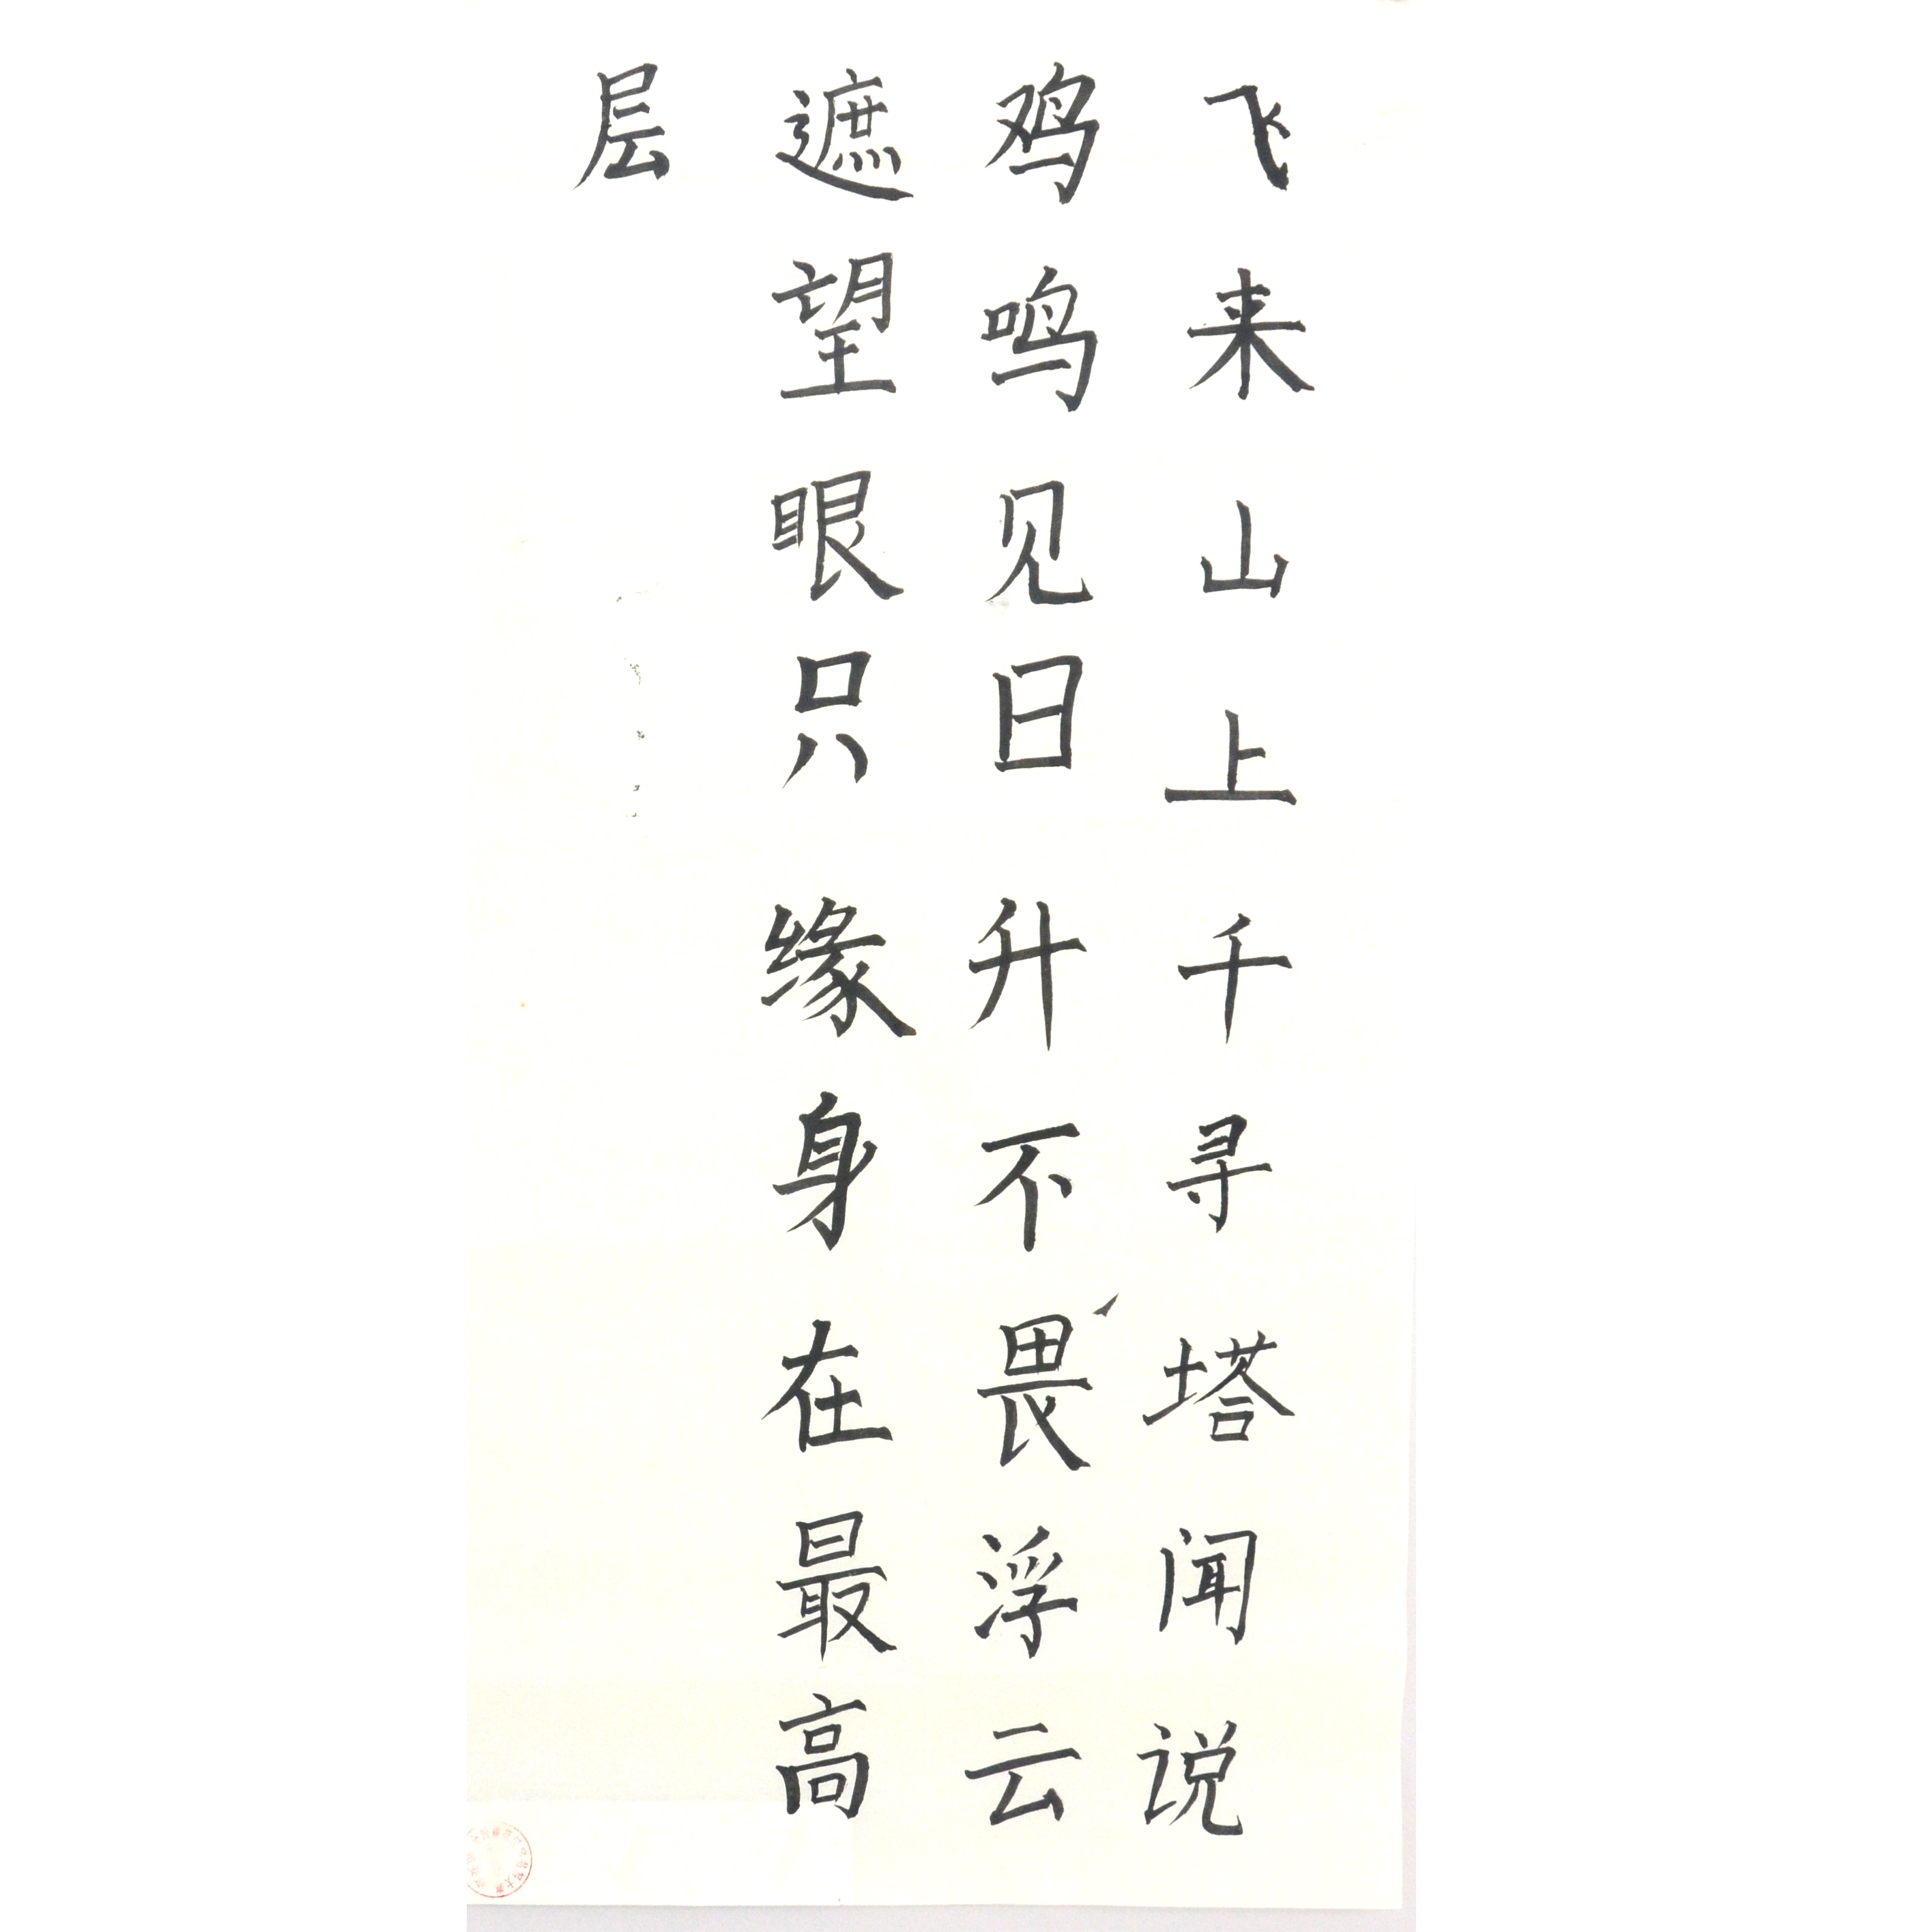 飞来山上千寻塔闻说
鸡鸣见日升不畏浮云
遮望眼只缘身在最高
层